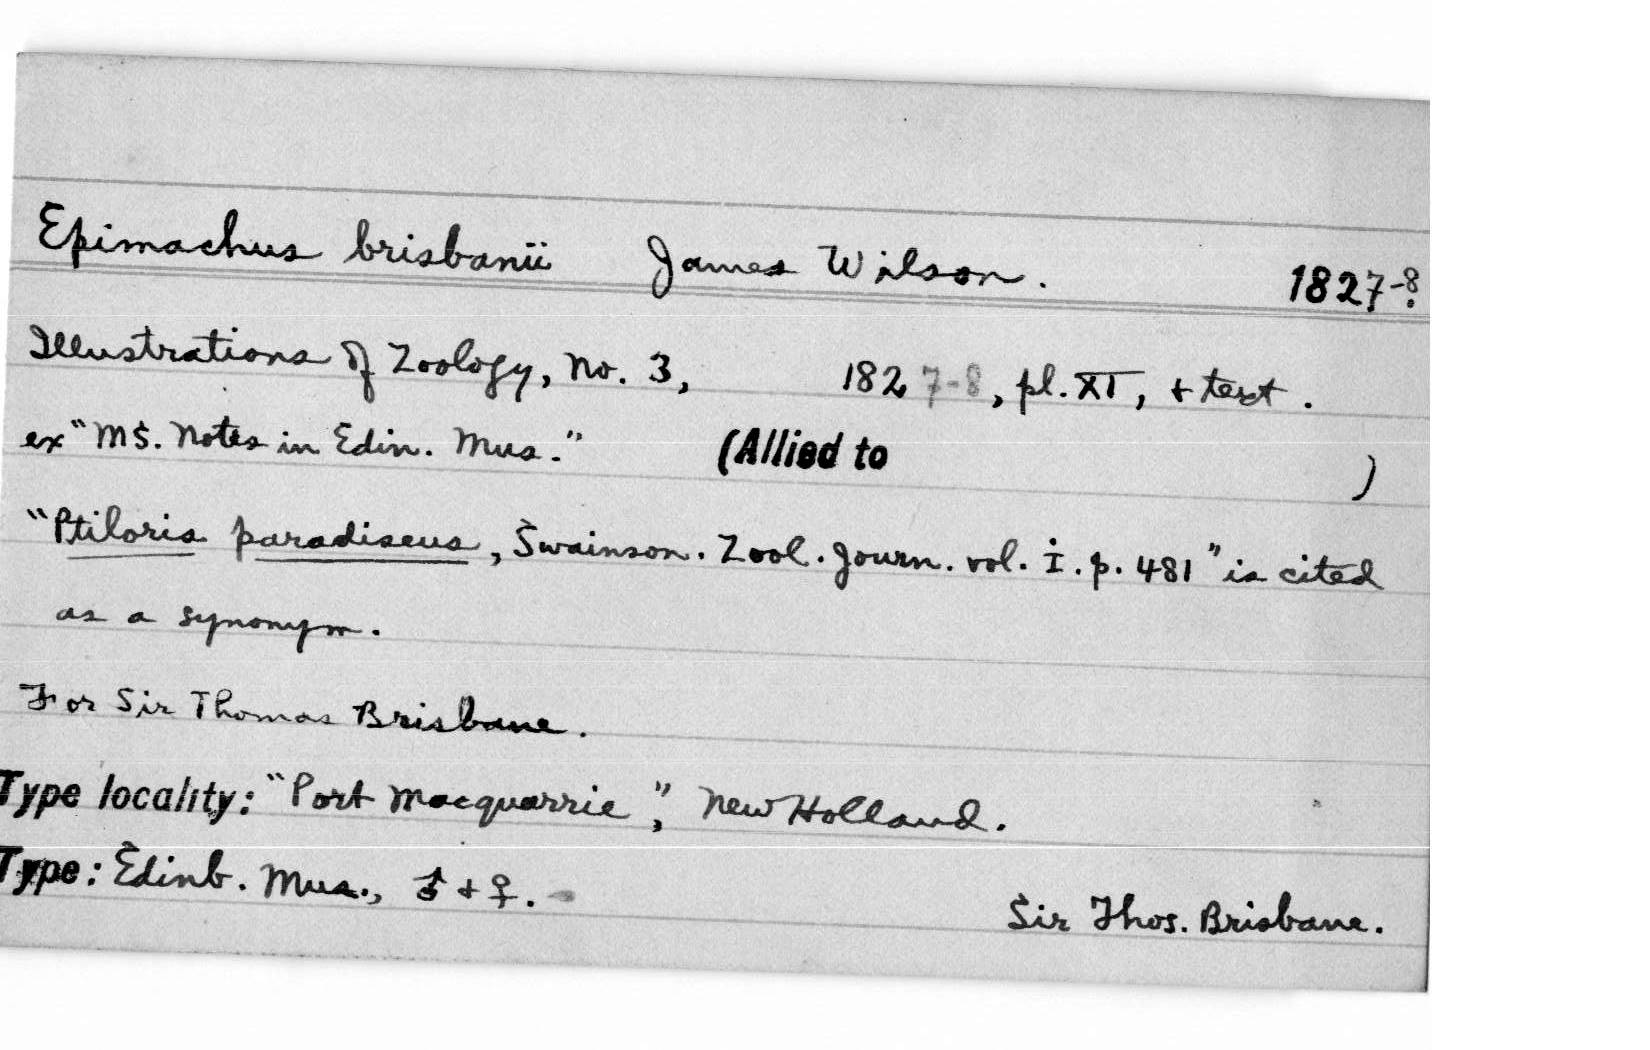 Epimachus brisbanii James Wilson. 1827-8.
Illustrations of Zoology, No. 3, 1827-8, pl. XI, + text.
ex "MS. Notes in Edin. Mus." (Allied to )
"Ptiloris paradiseus, Swainson. Zool. Journ. vol. i. p. 481" is cited
as a synonym.
For Sir Thomas Brisbane.
Type locality: "Port Macquarrie", New Holland.
Type: Edinb. Mus., ♂ + ♀.
Sir Thos. Brisbane.